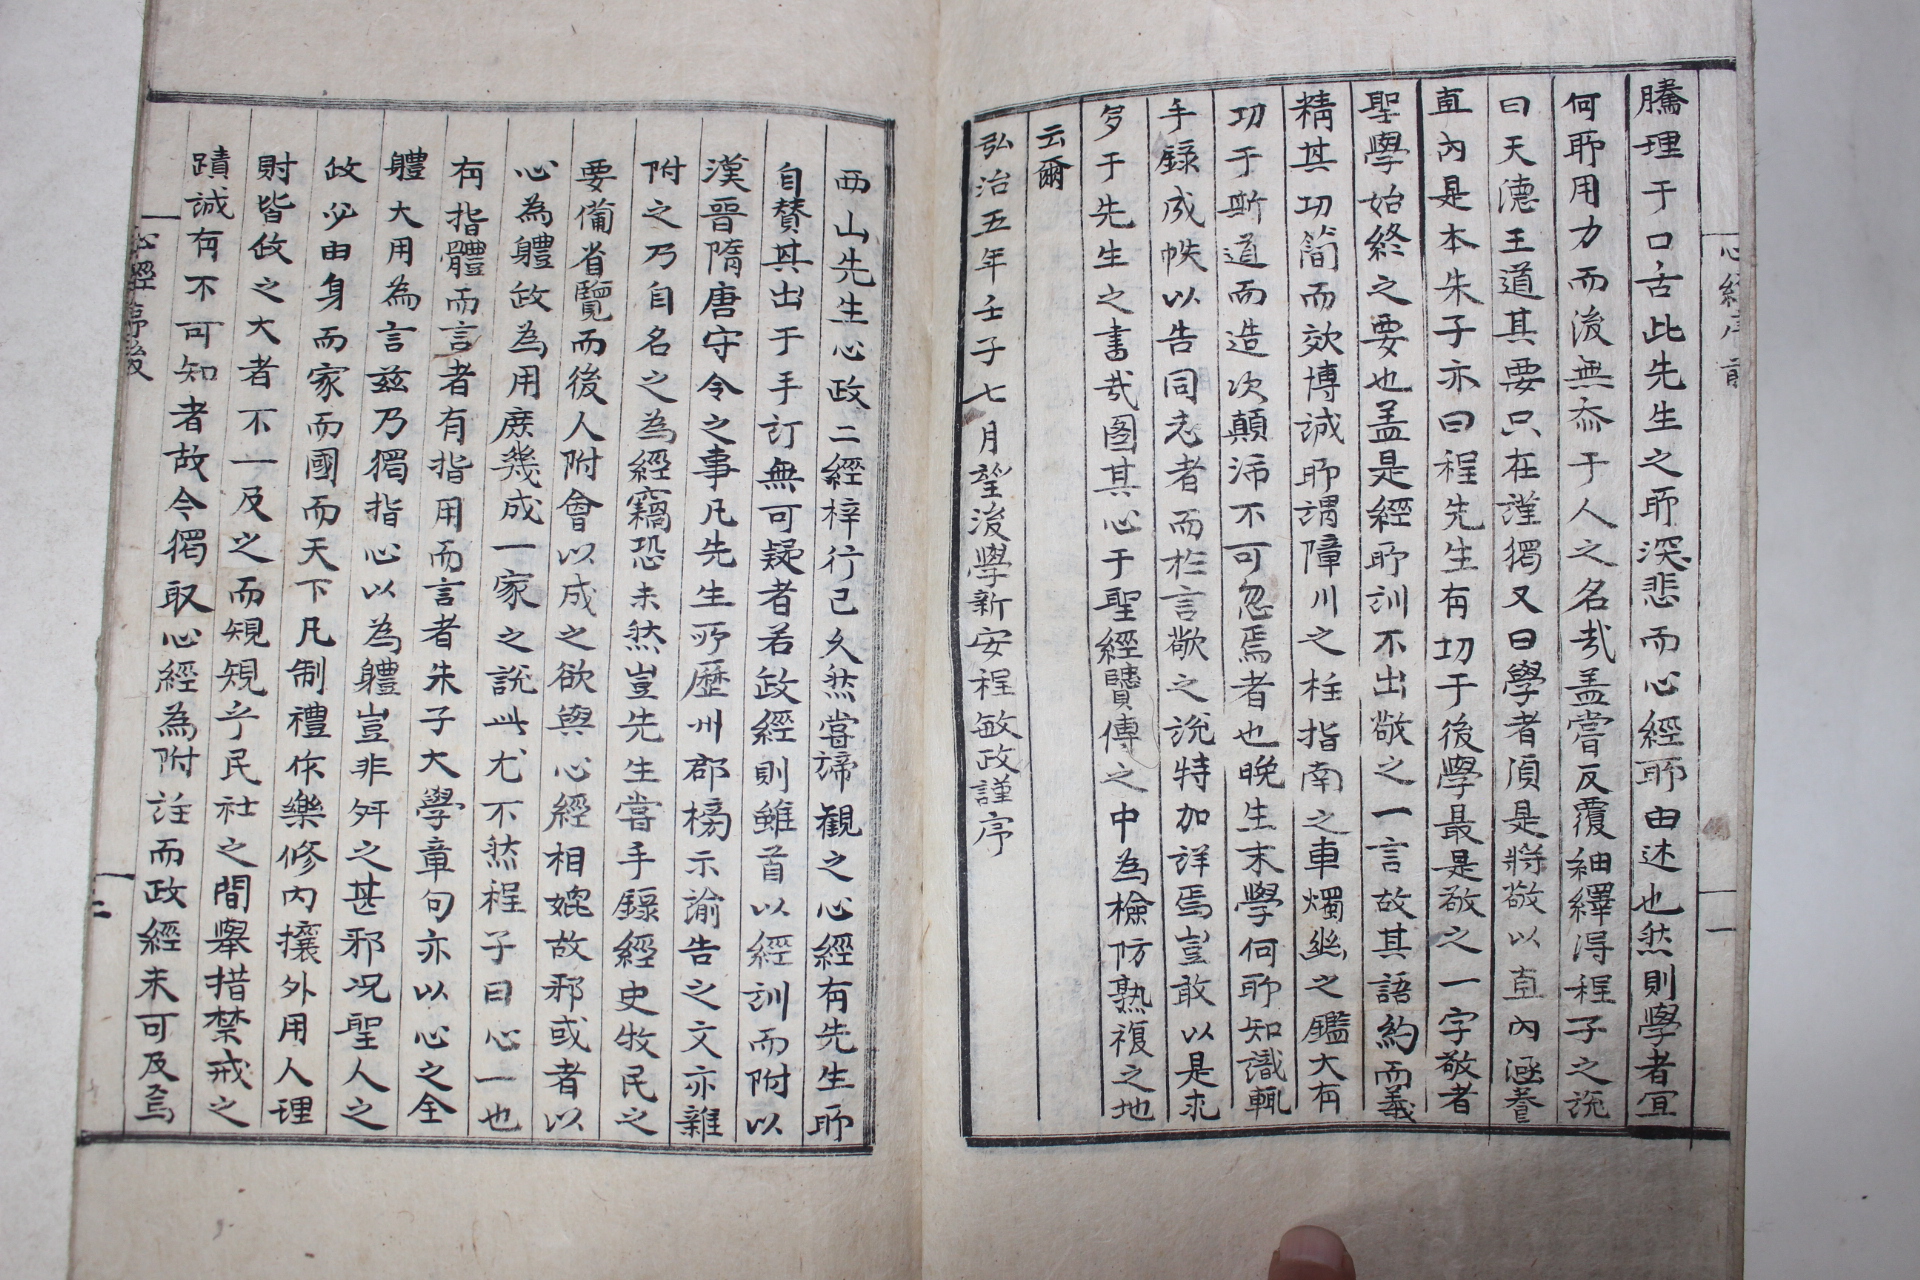 心經序前
一
騰理于口舌此先生之所深悲而心經所由述也然則學者宜
何所用力而後無忝于人之名哉盖嘗反覆紬繹得程子之説
曰天德王道其要只在謹獨又曰學者須是將敬以直內涵養
直內是本朱子亦曰程先生有功于後學最是敬之一字敬者
聖學始終之要也盖是經所訓不出敬之一言故其語約而義
精其功簡而效博誠所謂障川之柱指南之車燭幽之鑑大有
功于斯道而造次顛沛不可忽焉者也晩生末學何所知識輒
手錄成帙以告同志者而於言敬之説特加詳焉豈敢以是求
多于先生之書哉图其心于聖經賢傳之中為檢防熟複之地
云爾
弘治五年壬子七月望後學新安程敏政謹序
西山先生心政二經梓行已久然嘗諦觀之心經有先生所
自賛其出于手訂無可疑者若政經則雖首以經訓而附以
漢晉隋唐守令之事凡先生所歷州郡榜示諭告之文亦雜
附之乃自名之為經竊恐未然豈先生嘗手錄經史牧民之
要備省覽而後人附會以成之欲與心經相媲故邪或者以
心為軆政為用庶幾成一家之說此尤不然程子曰心一也
有指體而言者有指用而言者朱子大學章句亦以心之全
軆大用為言兹乃獨指心以為軆豈非舛之甚邪况聖人之
政必由身而家而國而天下凡制禮作樂修內攘外用人理
財皆政之大者不一及之而規規乎民社之間舉措禁戒之
蹟誠有不可知者故今獨取心經為附註而政經未可及焉
心經序後
二